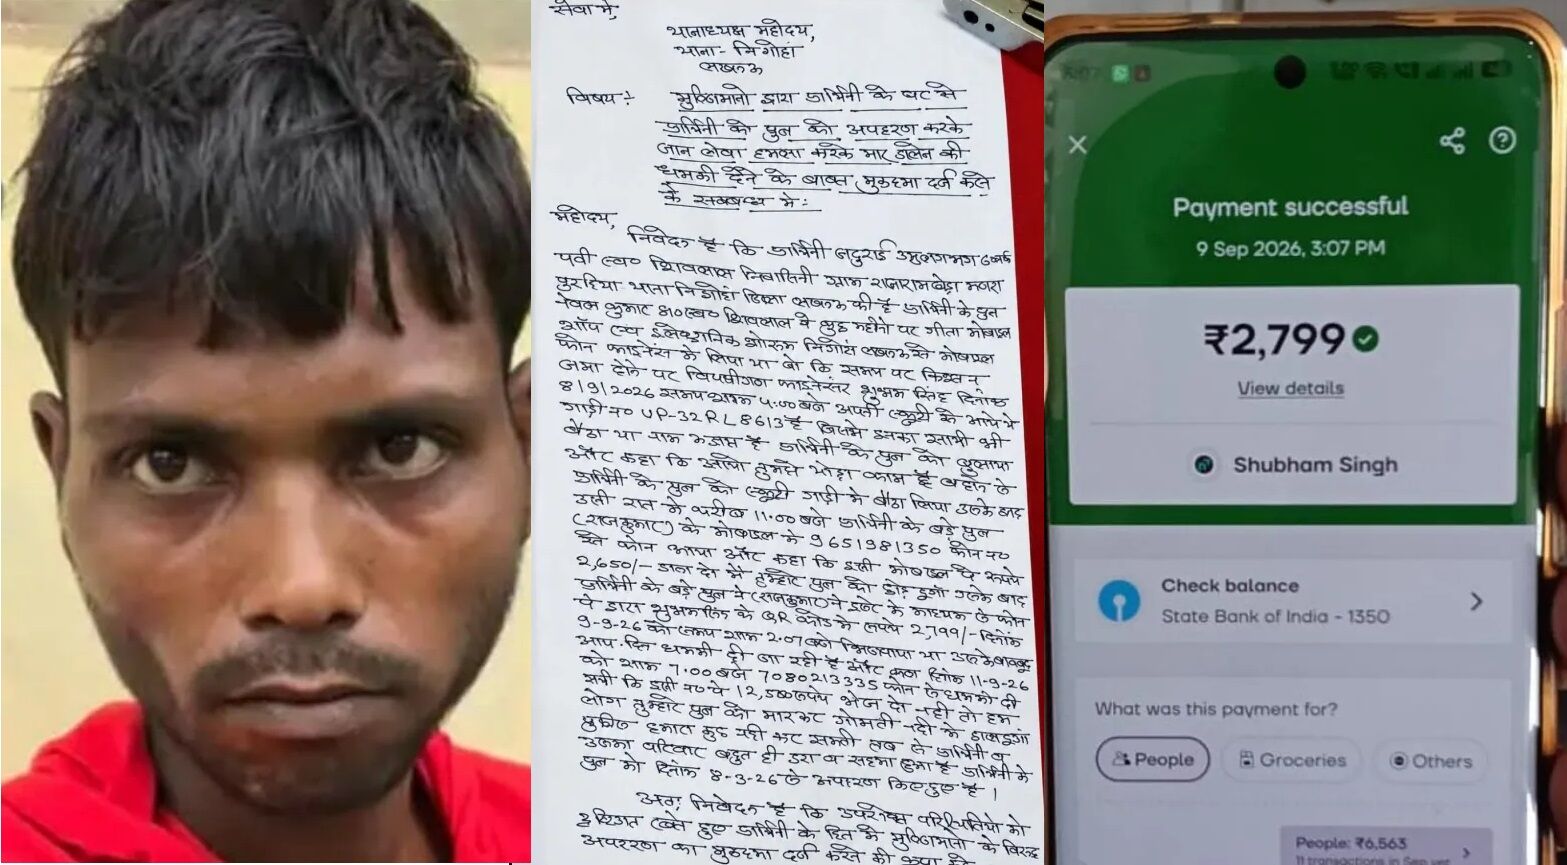 सेवा में,
थानाध्यक्ष महोदय,
थाना - निगोहां
लखनऊ
विषय :- मुल्जिमानो द्वारा प्रार्थिनी के घर से
प्रार्थिनी के पुत्र को अपहरण करके
जान लेवा हमला करके मार डालने की
धमकी देने के बाबत मुकदमा दर्ज करने
के सम्बन्ध में :
महोदय,
निवेदन है कि प्रार्थिनी
पत्नी स्व० शिवलाल निवासिनी ग्राम राजारामखेड़ा मजरा
पुरहिया थाना निगोहां जिला लखनऊ की है प्रार्थिनी के पुत्र
कुमार स्व० शिवलाल ने कुछ महीने पर गीता मोबाइल
शॉप एवं इलेक्ट्रानिक शोरूम निगोहां लखनऊ से मोबाइल
फोन फाइनेंस में लिया था जो कि समय पर किश्त न
जमा होने पर विपक्षीगण फाइनेन्सर शुभम सिंह दिनांक
8/9/2026 समय शाम 4:00 बजे अपनी स्कूटी से आये थे
गाड़ी नं० UP-32RL8613 है जिसमे उनका साथी भी
बैठा था नाम है प्रार्थिनी के पुत्र को बुलाया
और कहा कि आओ तुमसे थोड़ा काम है बहाने से
प्रार्थिनी के पुत्र को स्कूटी गाड़ी में बैठा लिया उसके बाद
उसी रात में करीब 11.00 बजे प्रार्थिनी के बड़े पुत्र
(राजकुमार) के मोबाइल में 9651981350 फोन नं०
से फोन आया और कहा कि इसी मोबाइल पे रूपये
2,650/- डाल दो मैं तुम्हारे पुत्र को छोड़ दूंगा उसके बाद
प्रार्थिनी के बड़े पुत्र ने (राजकुमार) ने के माध्यम से फोन
पे द्वारा शुभम सिंह के QR कोड में रूपये 2,799/- दिनांक
9-9-26 को समय शाम 2.07 बजे भिजवाया था उसके बावजूद
आए दिन धमकी दी जा रही है और कल दिनांक 11-9-26
को शाम 7.00 बजे 7080213335 फोन से धमकी दी
गयी कि इसी नं० पे 12, रूपये भेज दो नही तो हम
लोग तुम्हारे पुत्र को मारकर गोमती नदी में डाल दूंगा
पुलिस हमारा कुछ नही कर सकती तब से प्रार्थिनी व
उसका परिवार बहुत ही डरा व सहमा हुआ है प्रार्थिनी के
पुत्र को दिनांक 8-3-26 से अपहरण किए हुए है।
अतः निवेदन है कि उपरोक्त परिस्थितियो को
दृष्टिगत रखते हुए प्रार्थिनी के हित में मुल्जिमानो के विरूद्ध
अपहरण का मुकदमा दर्ज करने की कृपा
3:07
Payment successful
9 Sep 2026, 3:07 PM
₹2,799
View details
Shubham Singh
Check balance
State Bank of India - 1350
What was this payment for?
People
Groceries
Others
People: ₹6,563
11 transactions in Sep